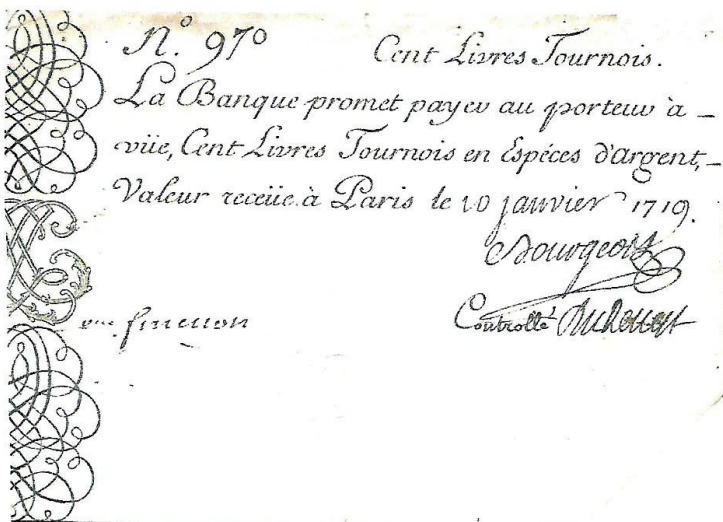 N.o 970 Cent Livres Tournois.
La Banque promet payer au porteur à
vüe, Cent Livres Tournois en Espéces d'argent,
Valeur receüe à Paris le 10 janvier 1719.
Bourgeois
Controllé